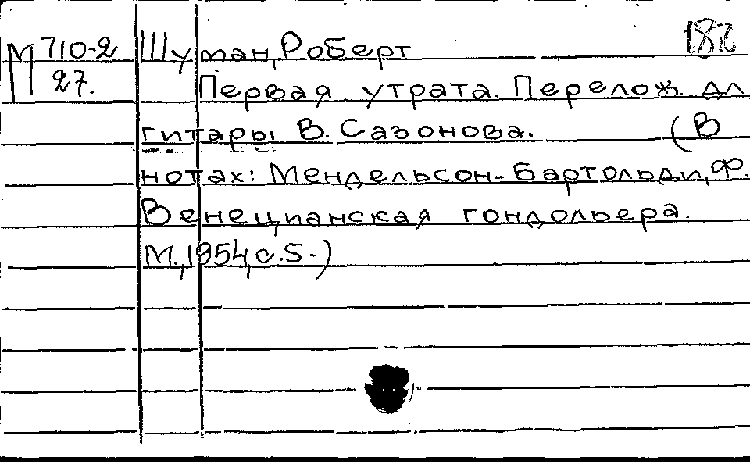 М 710-2 Шуман, Роберт 182
27. Первая утрата. Перелож. дл
гитары В. Сазонова. (В
нотах: Мендельсон-Бартольди, Ф.
Венецианская гондольера.
М., 1954, с. 5-)